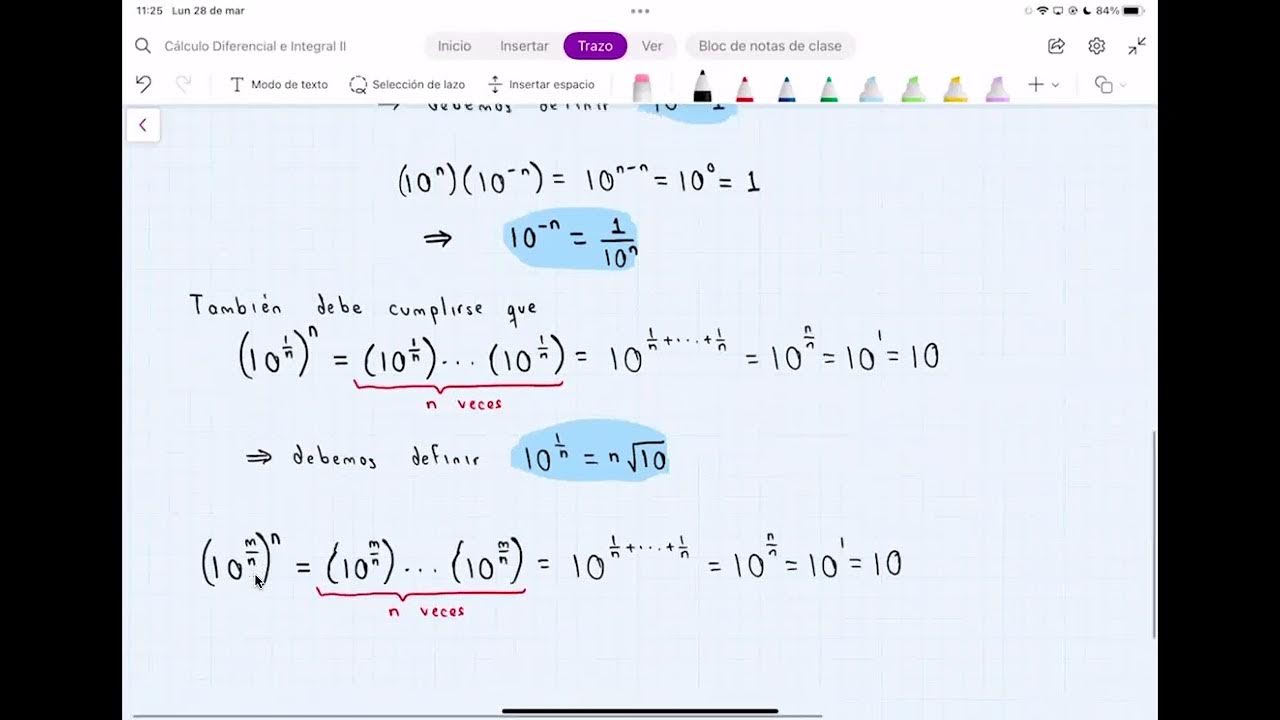 11:25 Lun 28 de mar 84%
Cálculo Diferencial e Integral II Inicio Insertar Trazo Ver Bloc de notas de clase
Modo de texto Selección de lazo Insertar espacio
⇒ debemos definir 10⁰ = 1
(10ⁿ)(10⁻ⁿ) = 10ⁿ⁻ⁿ = 10⁰ = 1
⇒ 10⁻ⁿ = 1/10ⁿ
También debe cumplirse que
(10^(1/n))^n = (10^(1/n)) ··· (10^(1/n)) = 10^(1/n + ··· + 1/n) = 10^(n/n) = 10^1 = 10
n veces
⇒ debemos definir 10^(1/n) = n√10
(10^(m/n))^n = (10^(m/n)) ··· (10^(m/n)) = 10^(1/n + ··· + 1/n) = 10^(n/n) = 10^1 = 10
n veces